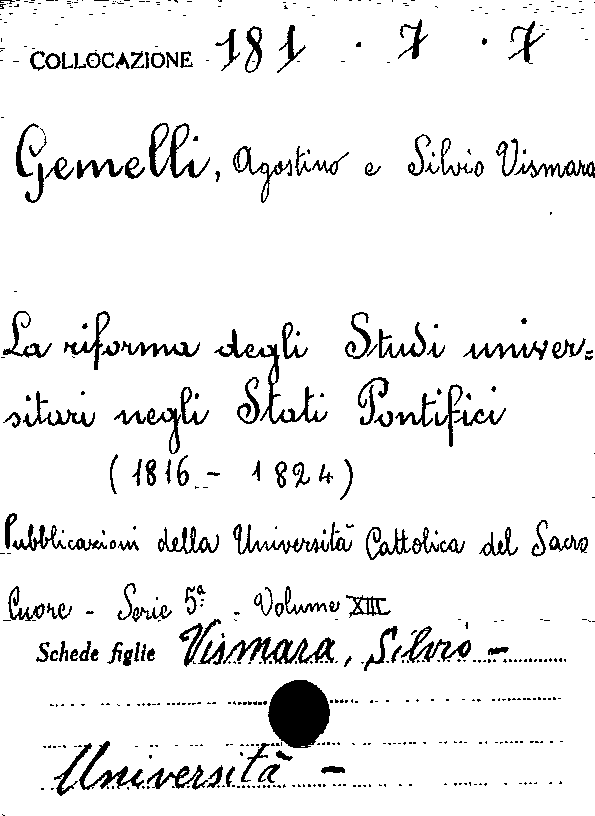 COLLOCAZIONE 181 . 7 . 7
Gemelli, Agostino e Silvio Vismara
La riforma degli Studi univer=
sitari negli Stati Pontifici
(1816 - 1824)
Pubblicazioni della Università Cattolica del Sacro
Cuore - Serie 5ª. - Volume XIII
Schede figlie Vismara, Silvio -
Università -